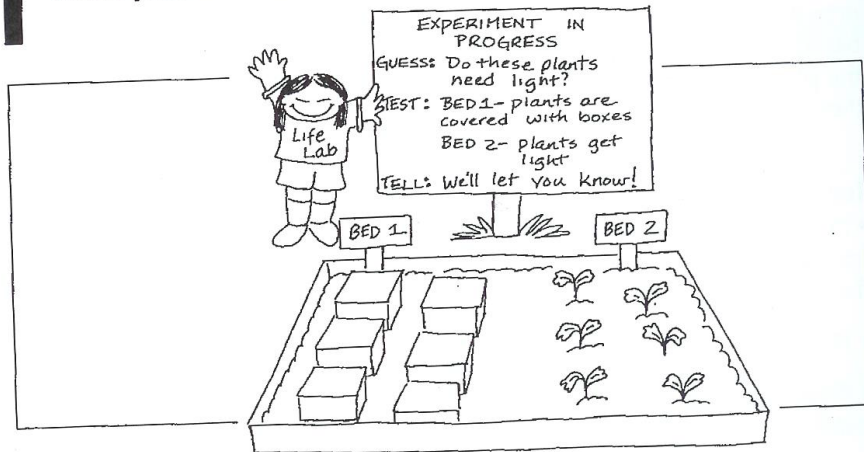 EXPERIMENT IN
PROGRESS
GUESS: Do these plants
need light?
TEST: BED 1- plants are
covered with boxes
BED 2- plants get
light
TELL: We'll let you know!
Life
Lab
BED 1
BED 2